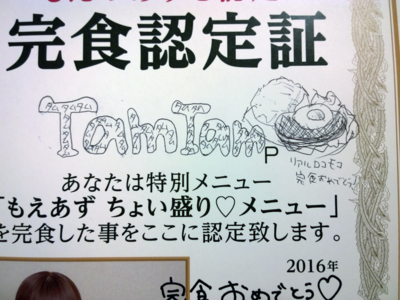 完食認定証
タムタムタム
タムタム
TamTam
P
リアルロコモコ
完食おめでとう!
あなたは特別メニュー
「もえあず ちょい盛り♡メニュー」
を完食した事をここに認定致します。
2016年
完食おめでとう♡